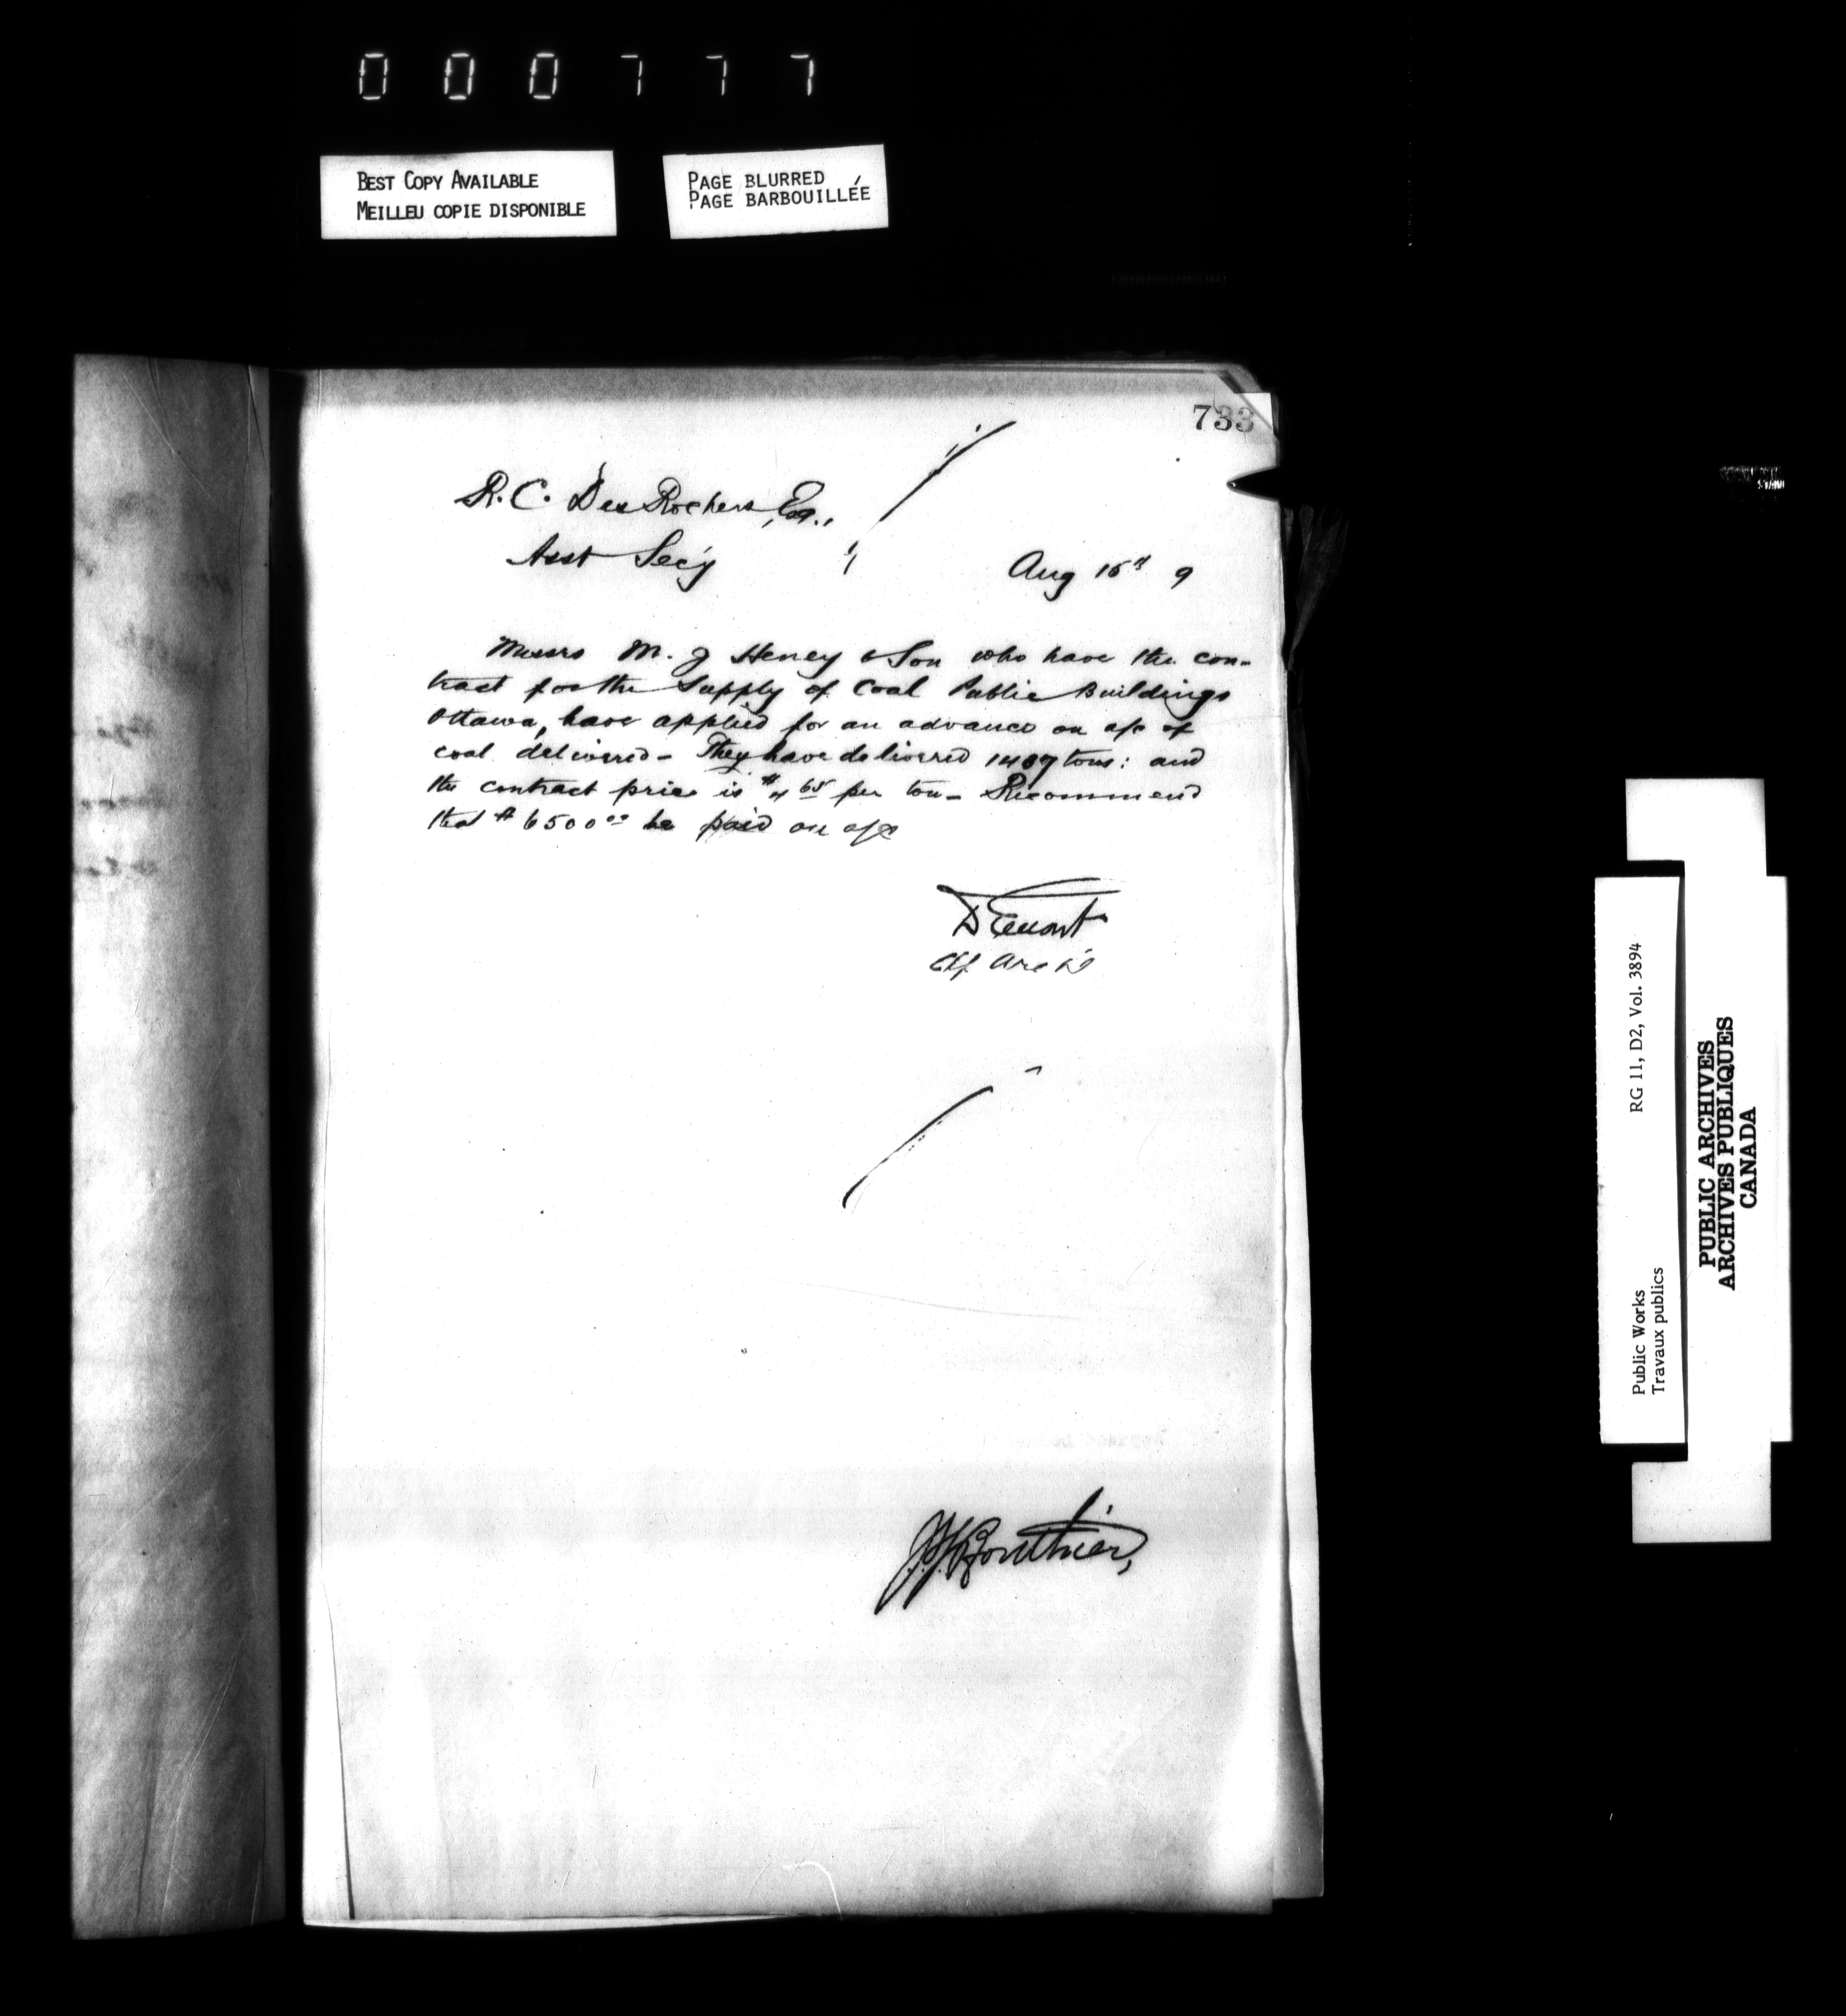 000777
BEST COPY AVAILABLE
MEILLEU COPIE DISPONIBLE
PAGE BLURRED
PAGE BARBOUILLÉE
733
R. C. DesRochers, Esq.,
Asst Sec'y
Aug 16th 9
Messrs M. J Heney & Son who have the con-
tract for the Supply of Coal Public Buildings
Ottawa, have applied for an advance on a/c of
coal delivered - They have delivered tons: and
the contract price is $4 65 per ton - Recommend
that $6500 00 be paid on a/c
D Ewart
Chf Arct
Public Works
Travaux publics
RG 11, D2, Vol. 3894
PUBLIC ARCHIVES
ARCHIVES PUBLIQUES
CANADA